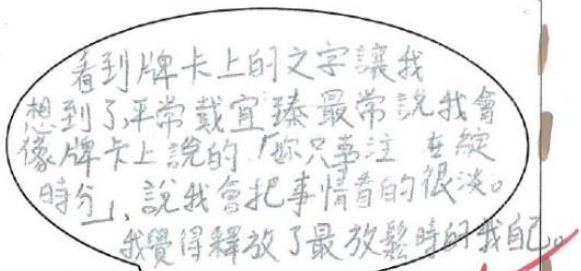 看到牌卡上的文字讓我
想到了平常戴宜臻最常說我會
像牌卡上說的「妳只專注 在綻
時分」，說我會把事情看的很淡。
我覺得釋放了最放鬆時的我自己。